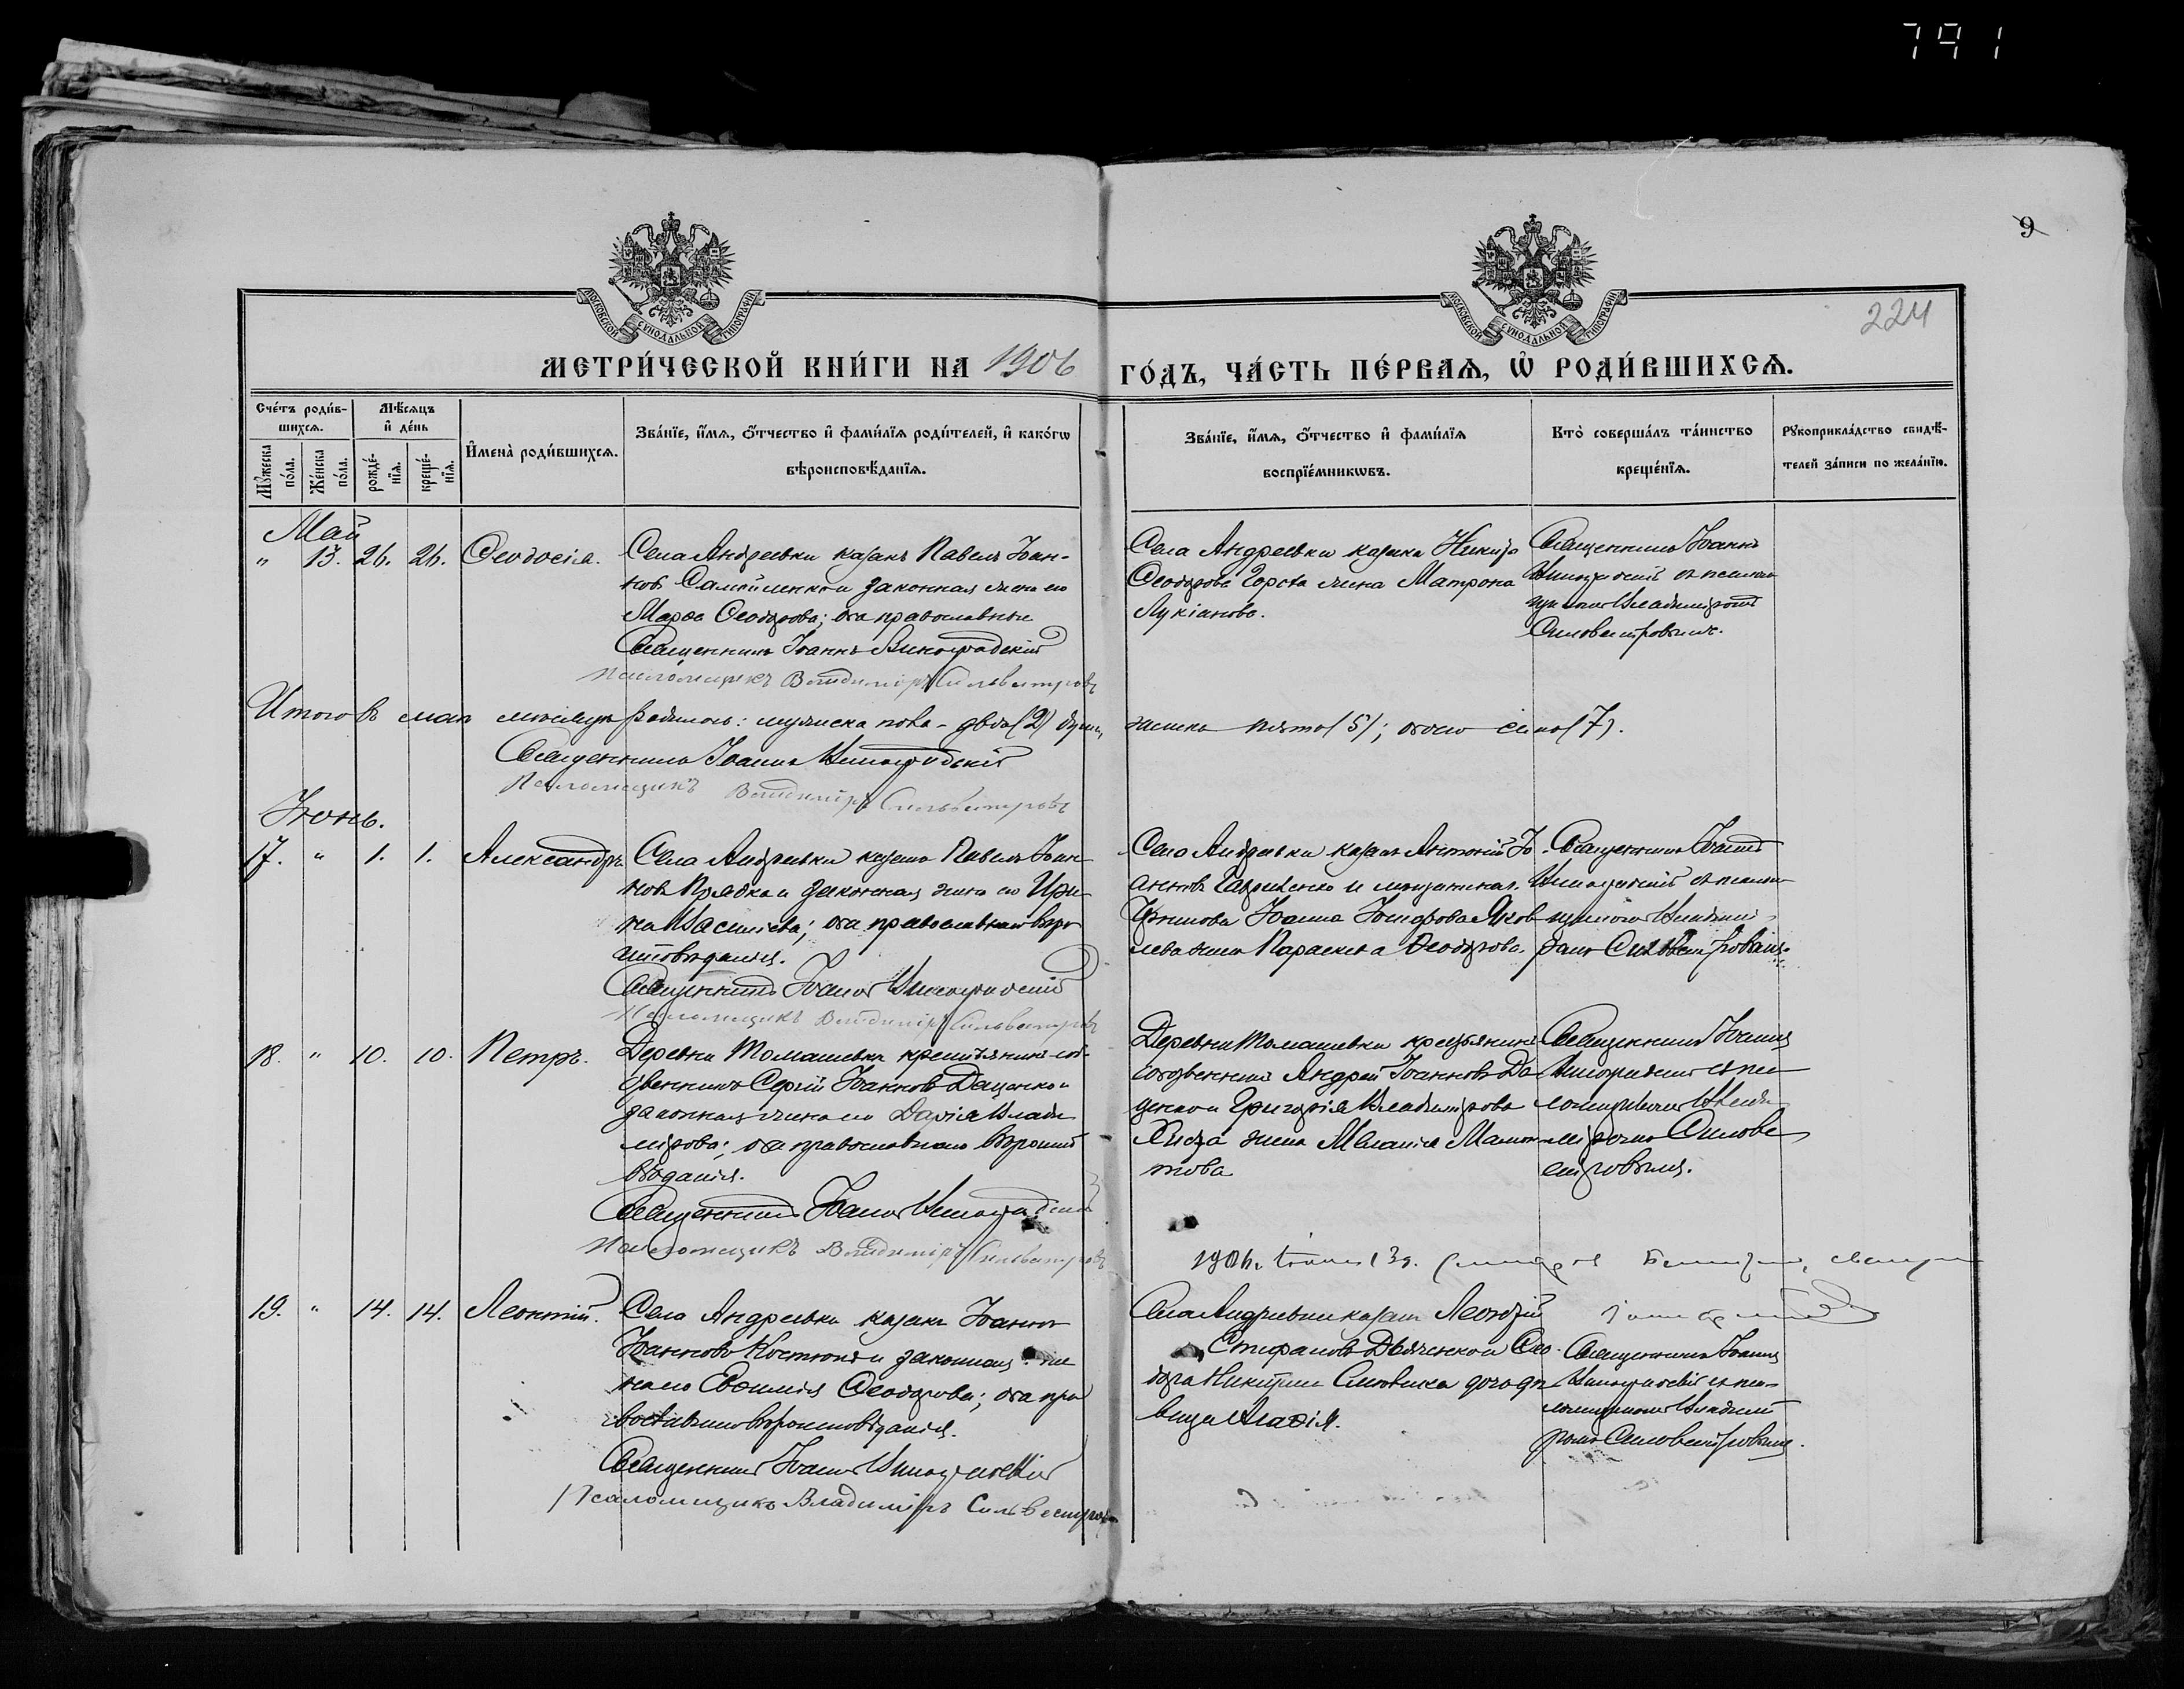 791
9
224
МОСКОВСКОЙ СѴНОДАЛЬНОЙ ТИПОГРАФІИ
МОСКОВСКОЙ СѴНОДАЛЬНОЙ ТИПОГРАФІИ
МЕТРИ́ЧЕСКОЙ КНИ́ГИ НА 1906 ГО́ДЪ, ЧА́СТЬ ПЕ́РВАѦ, Ѡ҆ РОДИ́ВШИХСѦ.
Сче́тъ роди́в-
шихсѧ.
Мꙋ́жеска
по́ла.
Же́нска
по́ла.
Мѣ́сѧцъ
и҆ де́нь
рожде́-
нїѧ.
креще́-
нїѧ.
И҆мена̀ роди́вшихсѧ.
Зва́нїе, и҆́мѧ, ѻ҆́тчество и҆ фами́лїѧ роди́телей, и҆ како́гѡ
вѣроисповѣ́данїѧ.
Зва́нїе, и҆́мѧ, ѻ҆́тчество и҆ фами́лїѧ
воспрїе́мникѡвъ.
Кто̀ соверша́лъ та́инство
креще́нїѧ.
Рꙋкоприкла́дство свидѣ́-
телей за́писи по жела́нїю.
Май
" 13. 26. 26. Ѳеодосія.
Села Андреевки казакъ Павелъ Іоан-
новъ Самойленко и законная жена его
Марѳа Ѳеодорова; оба православные
Священникъ Іоаннъ Виноградскій
Псаломщикъ Владиміръ Сильвестровъ
Села Андреевки казака Никиты
Ѳеодорова жена Матрона
Лукіанова.
Священникъ Іоаннъ
Виноградскій съ псалом-
щикомъ Владиміромъ
Сильвестровымъ.
Итого въ маѣ мѣсяцѣ родилось: мужеска пола - два (2) души,
женска пять (5); обоего семь (7).
Священникъ Іоаннъ Виноградскій
Псаломщикъ Владиміръ Сильвестровъ
Іюнь.
17. " 1. 1. Александръ
Села Андреевки казакъ Павелъ Іоан-
новъ Прядка и законная жена его Ири-
на Васильева; оба православнаго вѣро-
исповѣданія.
Священникъ Іоаннъ Виноградскій
Псаломщикъ Владиміръ Сильвестровъ
Села Андреевки казакъ Антоній Іо-
анновъ и
Іоанна Яков-
лева жена Параскева Ѳеодорова.
Священникъ Іоаннъ
Виноградскій съ псалом-
щикомъ Владимі-
ромъ Сильвестровымъ.
18. " 10. 10. Петръ.
Деревни Томашевки крестьянинъ-соб-
ственникъ Сергій Іоанновъ Даценко и
законная жена его Дарія Влади-
мірова; оба православнаго вѣроиспо-
вѣданія.
Священникъ Іоаннъ Виноградскій
Псаломщикъ Владиміръ Сильвестровъ
Деревни Томашевки крестьянинъ-
собственникъ Андрей Іоанновъ Да-
ценко и Григорія Владимірова
жена Меланія
Священникъ Іоаннъ
Виноградскій съ пса-
ломщикомъ Влади-
міромъ Сильве-
стровымъ.
1906
19. " 14. 14. Леонтій.
Села Андреевки казакъ Іоаннъ
Іоанновъ и законная же-
на его Евѳимія Ѳеодорова; оба пра-
вославнаго вѣроисповѣданія.
Священникъ Іоаннъ Виноградскій
Псаломщикъ Владиміръ Сильвестровъ
Села Андреевки казакъ Леонтій
Стефановъ Дьяченко и Ѳео-
дора Никитина дочь дѣ-
вица Агаѳія.
Священникъ Іоаннъ
Виноградскій съ пса-
ломщикомъ Владимі-
ромъ Сильвестровымъ.